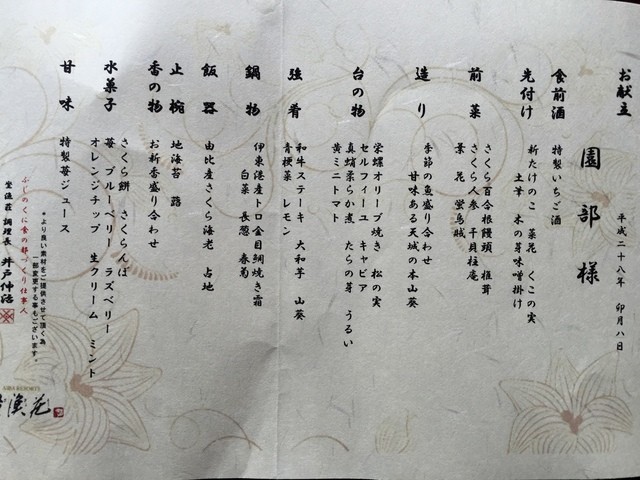 お献立
平成二十八年 卯月八日
園部様
食前酒 特製いちご酒
先付け 新たけのこ 菜花 くこの実
土筆 木の芽味噌掛け
前菜 さくら百合根饅頭 椎茸
さくら人参 干貝柱庵
葉花 蛍烏賊
造り 季節の魚盛り合わせ
甘味ある天城の本山葵
台の物 栄螺オリーブ焼き 松の実
セルフィーユ キャビア
真蛸柔らか煮 たらの芽 うるい
黄ミニトマト
強肴 和牛ステーキ 大和芋 山葵
青梗菜 レモン
鍋物 伊東港産トロ金目鯛焼き霜
白菜 長葱 春菊
飯器 由比産さくら海老 占地
止椀 地海苔 蕗
香の物 お新香盛り合わせ
水菓子 さくら餅 さくらんぼ
苺 ブルーベリー ラズベリー
オレンジチップ 生クリーム ミント
甘味 特製苺ジュース
*より良い素材をご提供させて頂く為
一部変更する事もございます。
ふじのくに食の都づくり仕事人
調理長 井戸伸治
漁花